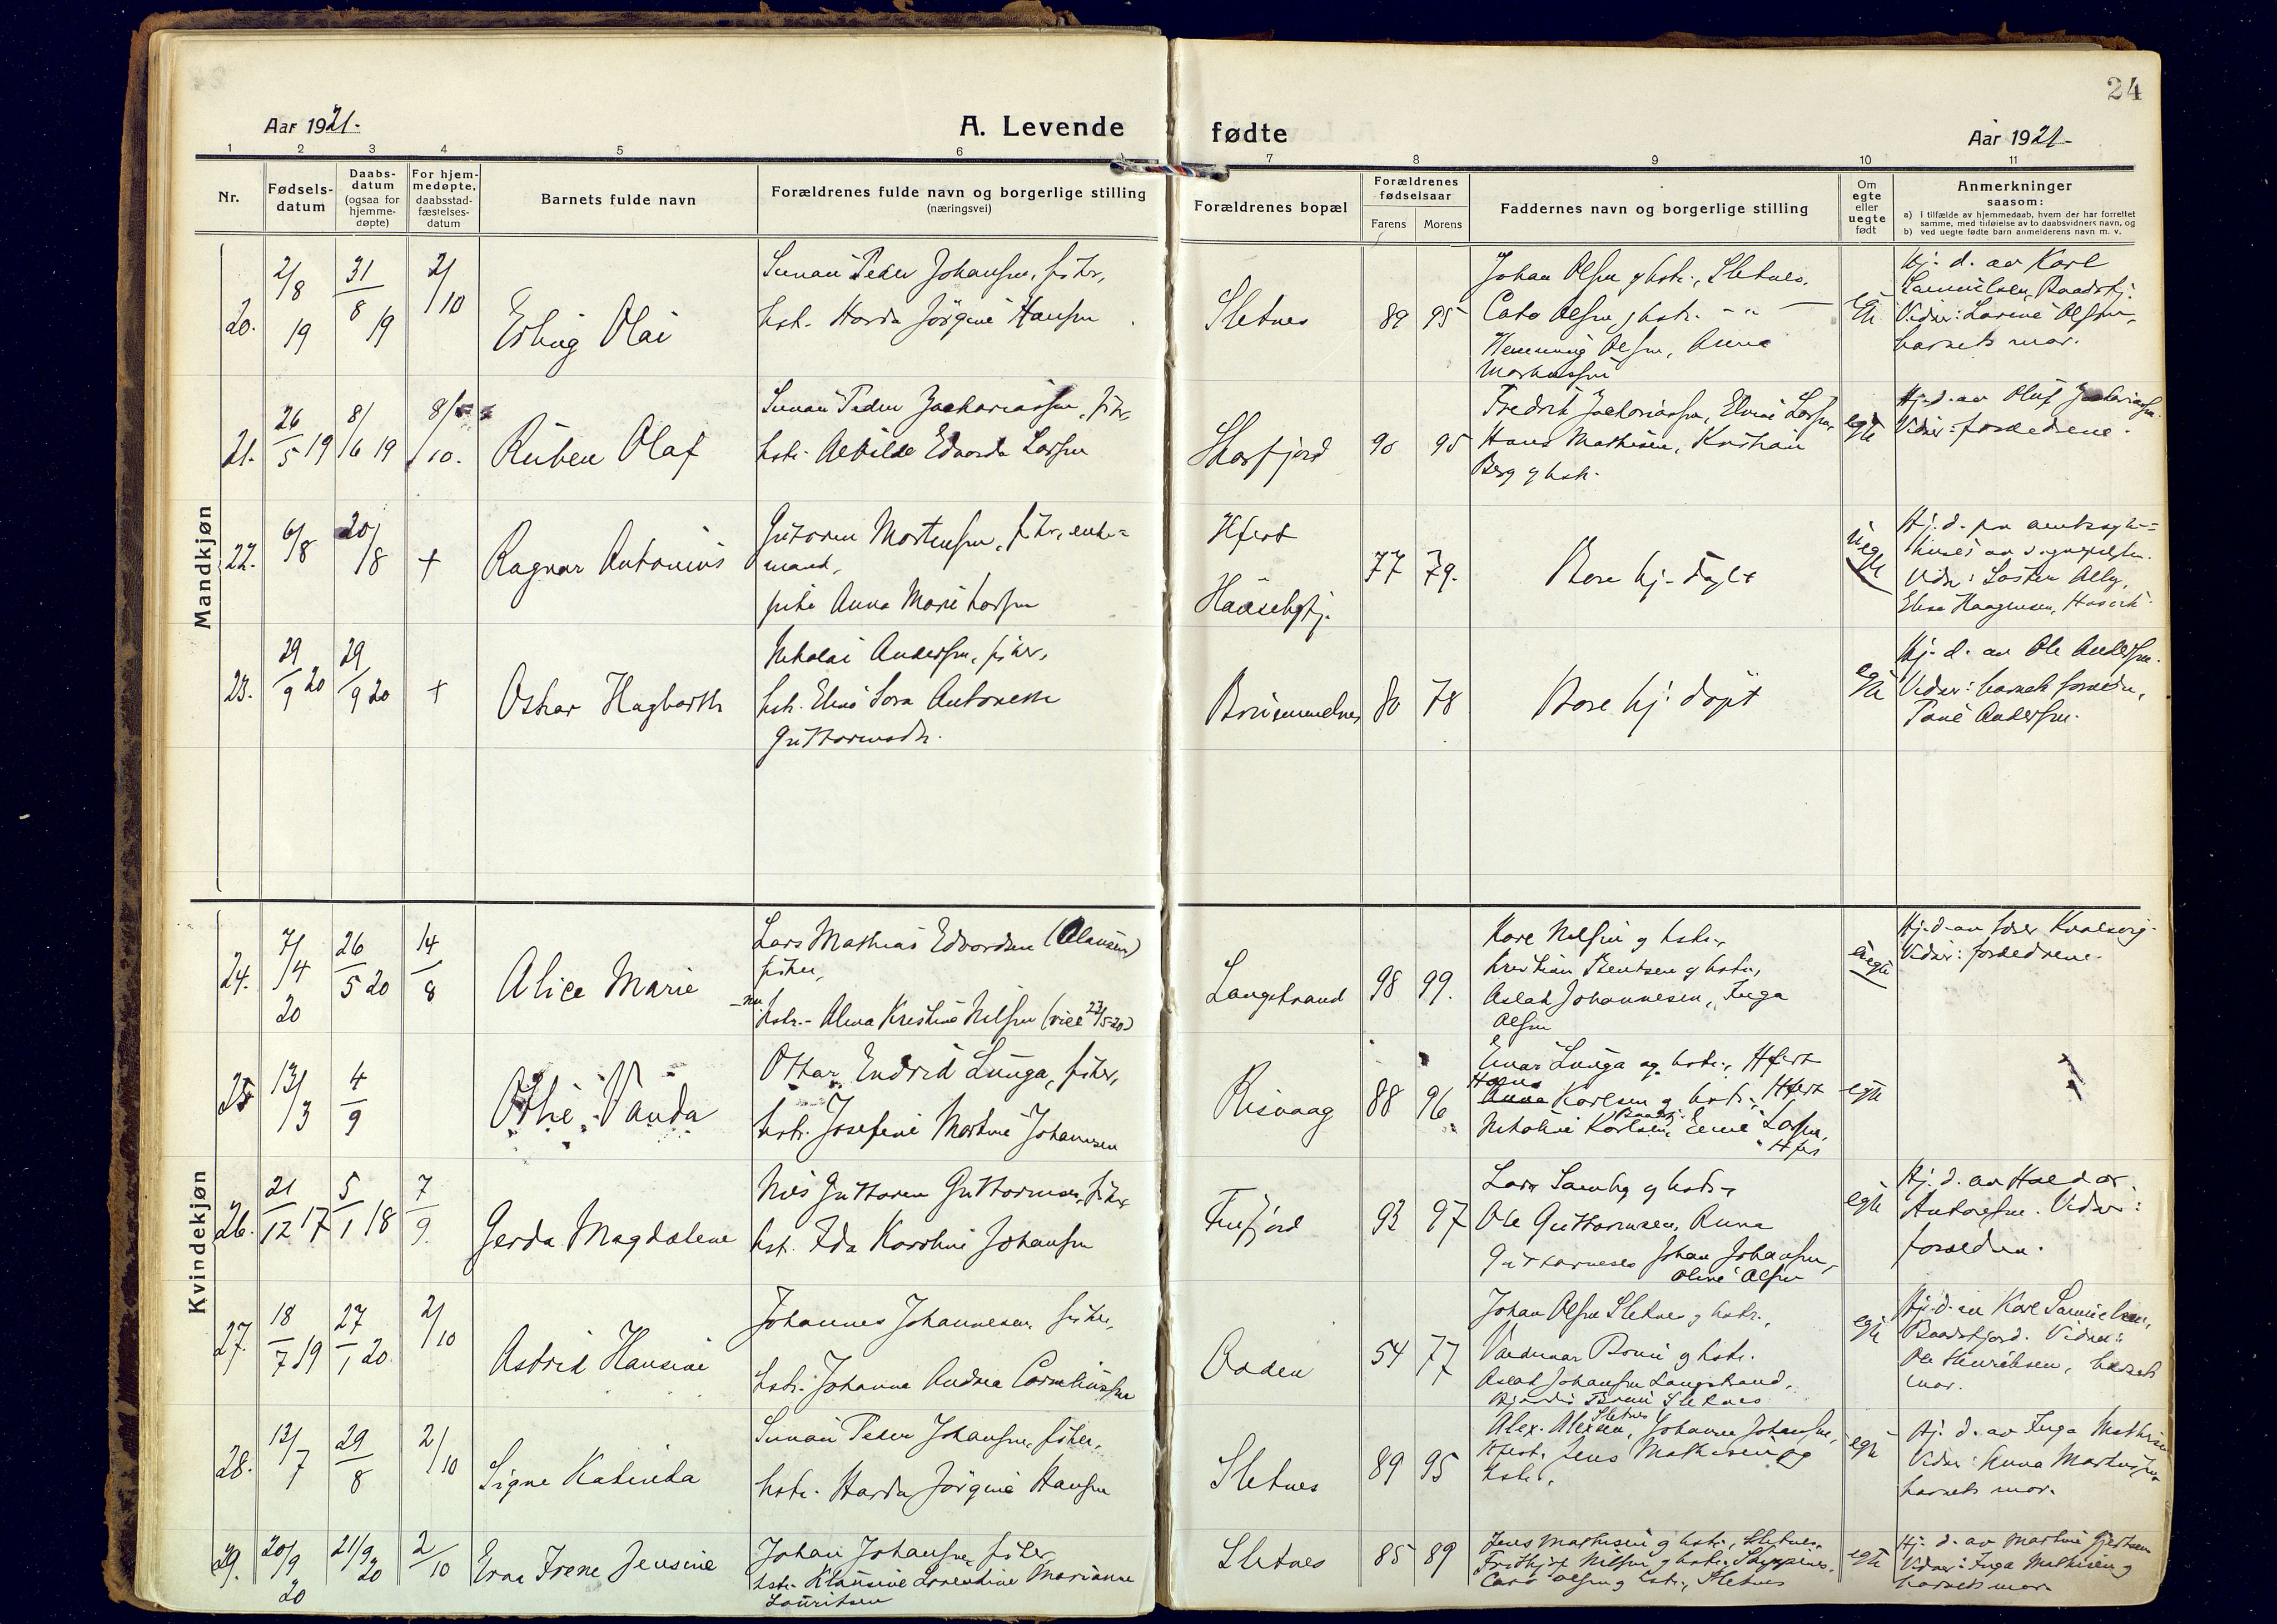 24
Aar 1921.
A. Levende fødte
Aar 1921
1 2 3 4 5 6 7 8 9 10 11
Nr.
Fødsels-
datum
Daabs-
datum
(ogsaa for
hjemme-
døpte)
For hjem-
medøpte,
daabsstad-
fæstelses-
datum
Barnets fulde navn
Forældrenes fulde navn og borgerlige stilling
(næringsvei)
Forældrenes bopæl
Forældrenes
fødselsaar
Farens Morens
Faddernes navn og borgerlige stilling
Om
egte
eller
uegte
født
Anmerkninger
saasom:
a) I tilfælde av hjemmedaab, hvem der har forrettet
samme, med tilføielse av to daabsvidners navn, og
b) ved uegte fødte barn anmelderens navn m. v.
Mandkjøn
20. 2/8 19 31/8 19 2/10
Erling Olai
Peder Johansen, fisker,
hstr. Harda Jörgine Hansen
Sletnes 89 95
Johan Olsen g hstr., Sletnes.
Cato Olsen g hstr. - " -
Henning Olsen, Anna
Markussen
egte
Hj. d. av Karl
Samuelsen, Baadsfj.
Vidner: Lorine Olsen,
barnets mor.
21. 26/5 19 8/6 19 8/10.
Ruben Olaf
Peder Zachariassen, fisker
hstr. Alvilde Edvarda Larsen
90 95
Fredrik Zachariassen, Larsen,
Hans Mathisen, Kristian
Berg g hstr.
egte
Hj. d. av Oluf Zachariassen.
Vidner: forældrene.
22. 6/8 20/8 +
Ragnar Antonius
Guttorm Mortensen, fisker, enke-
mand,
pike Anna Marie Larsen
Hfest
77 79.
Bare hj. døpt
uegte
Hj. d. paa amtssyke-
huset av sogneprsten.
Elise Haagensen,
23. 29/9 20 29/9 20 +
Oskar Hagbarth
Nikolai Andersen, fisker,
hstr. Antonette
Guttormsdtr.
80 78
Bare hj. døpt
egte
Hj. d. av Ole Andersen.
Vidner: barnets forældre,
Andersen.
Kvindekjøn
24. 7/4 20 26/5 20 14/8
Alice Marie
Lars Mathias Edvardsen (Olausen)
fisker,
nu hstr. Alma Kristine Nilsen (viet 22/5-20)
Langstrand 98 99.
Kare Nilsen g hstr.,
Kristian Bentsen g hstr.,
Aslak Johannesen, Inga
Olsen
uegte
Vidner: forældrene.
25 13/3 4/9
Vanda
Ottar Endrid Lunga, fisker,
hstr. Josefine Martine Johannesen
Risvaag 88 96
Einar Lunga og hstr., Hfest
Hans
Karlsen g hstr., Hfest
Nikoline Karlsen, Larsen,
egte
26. 21/12 17 5/1 18 7/9.
Gerda Magdalene
Nils Guttorm Guttormsen, fisker
hst. Ida Karoline Johansen
93 97
Lars Samby g hstr.,
Ole Guttormsen, Anna
Guttormsen Johan Johansen,
Oline Olsen
egte
Hj. d. av Haldor
Antonsen. Vidner:
forældrene.
27. 18/7 19 27/1 20. 2/10
Astrid Hansine
Johannes Johannesen fisker,
hstr. Johanna Andrea Corneliussen
54 77
Johan Olsen Sletnes g hstr.,
Valdemar Bruun g hstr.
Aslak Johansen Langstrand,
Bruun Sletnes
egte
Hj. d. av Karl Samuelsen,
Baadsfjord. Vidner:
Ole Henriksen, barnets
mor.
28. 13/7 29/8 2/10
Signe Katinka
Peder Johansen, fisker,
hstr. Harda Jörgine Hansen
Sletnes 89 95
Sletnes
Alex. Alexsen, Johanne Johansen,
Hfest. Jens Mathisen og
hstr.
egte
Hj. d. av Inga Mathisen
Vidner: Anna Markussen
barnets mor.
29. 20/9 20 21/9 20 2/10
Erna Irene Jensine
Johan Johansen, fisker,
hstr. Klausine Lorentine Marianne
Lauritsen
Sletnes 85 89
Jens Mathisen g hstr., Sletnes.
Fridtjof Nilsen g hstr.
Cato Olsen g hstr., Sletnes
egte
Hj. d. av Martine Gjertsen
Vidner: Inga Mathisen g
barnets mor.